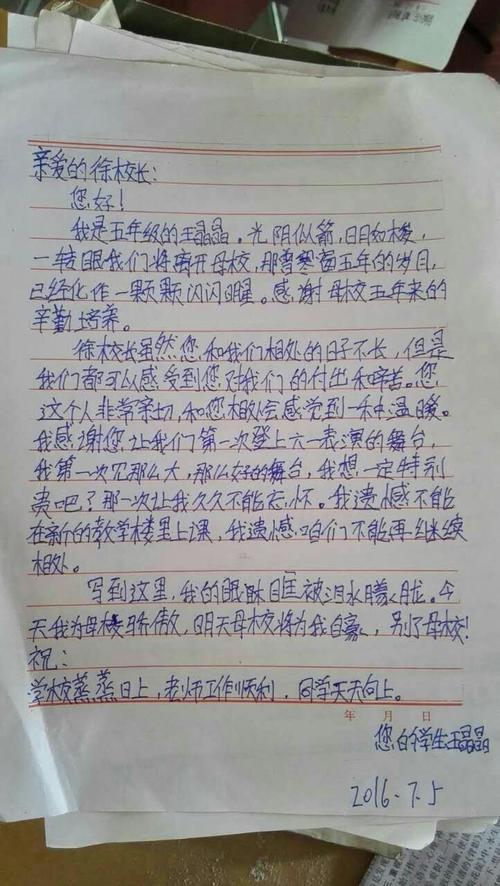 亲爱的徐校长：
您好！
我是五年级的王晶晶。光阴似箭，日月如梭，
一转眼我们将离开母校，那曾寒窗五年的岁月，
已经化作一颗颗闪闪耀。感谢母校五年来的
辛勤培养。
徐校长虽然您和我们相处的日子不长，但是
我们都可以感受到您对我们的付出和辛苦。您
这个人非常亲切，和您相处会感觉到一种温暖。
我感谢您让我们第一次登上六一表演的舞台，
我第一次见那么大，那么好的舞台，我想一定特别
贵吧？那一次让我久久不能忘怀。我遗憾不能
在新的教学楼里上课，我遗憾咱们不能再继续
相处。
写到这里，我的眼眶被泪水朦胧。今
天我为母校骄傲，明天母校将为我自豪，别了母校！
祝：
学校蒸蒸日上，老师工作顺利，同学天天向上。
年 月 日
您的学生王晶晶
2016.7.5